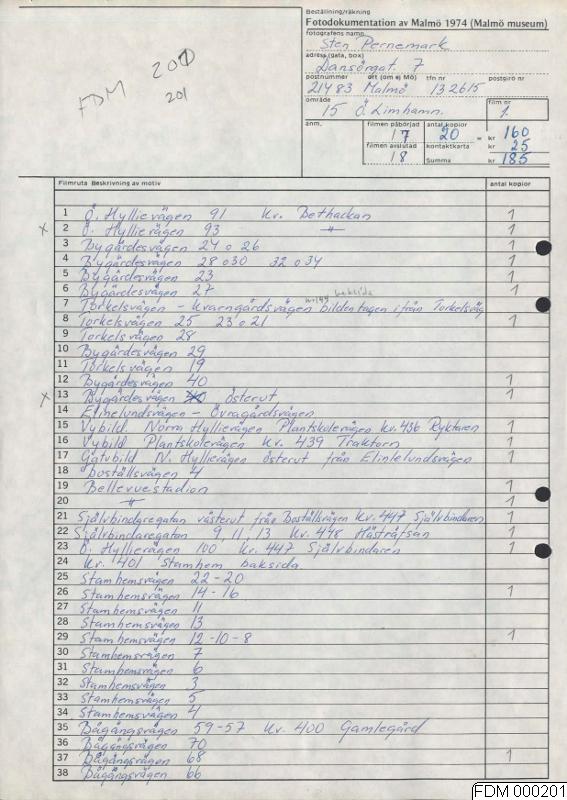 FDM 201
201
Beställning/räkning
Fotodokumentation av Malmö 1974 (Malmö museum)
fotografens namn
Sten Pernemark
adress (gata, box)
Dansörgat. 7
postnummer ort (om ej Mö) tfn nr postgiro nr
21483 Malmö 132615
område film nr
15 Ö. Limhamn. 1.
anm. filmen påbörjad antal kopior
17 20 = kr 160
filmen avslutad kontaktkarta kr 25
18 Summa kr 185
Filmruta Beskrivning av motiv antal kopior
1 Ö. Hyllievägen 91 Kv. Bethackan 1
x 2 Ö. Hyllievägen 93 -"- 1
3 Bygärdesvägen 24 o 26 1
4 Bygärdesvägen 28 o 30 32 o 34 1
5 Bygärdesvägen 23 1
6 Bygärdesvägen 27 1
baksida
7 Torkelsvägen - Kvarngårdsvägen bilden tagen ifrån Torkelsväg
8 Torkelsvägen 25 23 o 21 1
9 Torkelsvägen 28
10 Bygärdesvägen 29
11 Torkelsvägen 19
12 Bygärdesvägen 40 1
x 13 Bygärdesvägen österut 1
14 Elinelundsvägen - Övragårdsvägen
15 Vybild. Norra Hyllievägen Plantskolevägen Kv. 436 Ryktaren 1
16 Vybild Plantskolevägen Kv. 439 Traktorn 1
17 Gatubild N. Hyllievägen österut från Elinelundsvägen 1
18 boställsvägen 4
19 Bellevuestadion 1
20 -"- 1
21 Självbindaregatan västerut från Boställsvägen Kv. 447 Självbindaren 1
22 Självbindaregatan 9, 11, 13 Kv. 448 Hästräfsan 1
23 Ö. Hyllievägen 100 Kv. 447 Självbindaren 1
24 Kv. 401 Stamhem baksida
25 Stamhemsvägen 22-20
26 Stamhemsvägen 14-16 1
27 Stamhemsvägen 11
28 Stamhemsvägen 13
29 Stamhemsvägen 12-10-8 1
30 Stamhemsvägen 7
31 Stamhemsvägen 6
32 Stamhemsvägen 3
33 Stamhemsvägen 5
34 Stamhemsvägen 4
35 Bågängsvägen 59-57 Kv. 400 Gamlegård
36 Bågängsvägen 70
37 Bågängsvägen 68 1
38 Bågängsvägen 66
FDM 000201